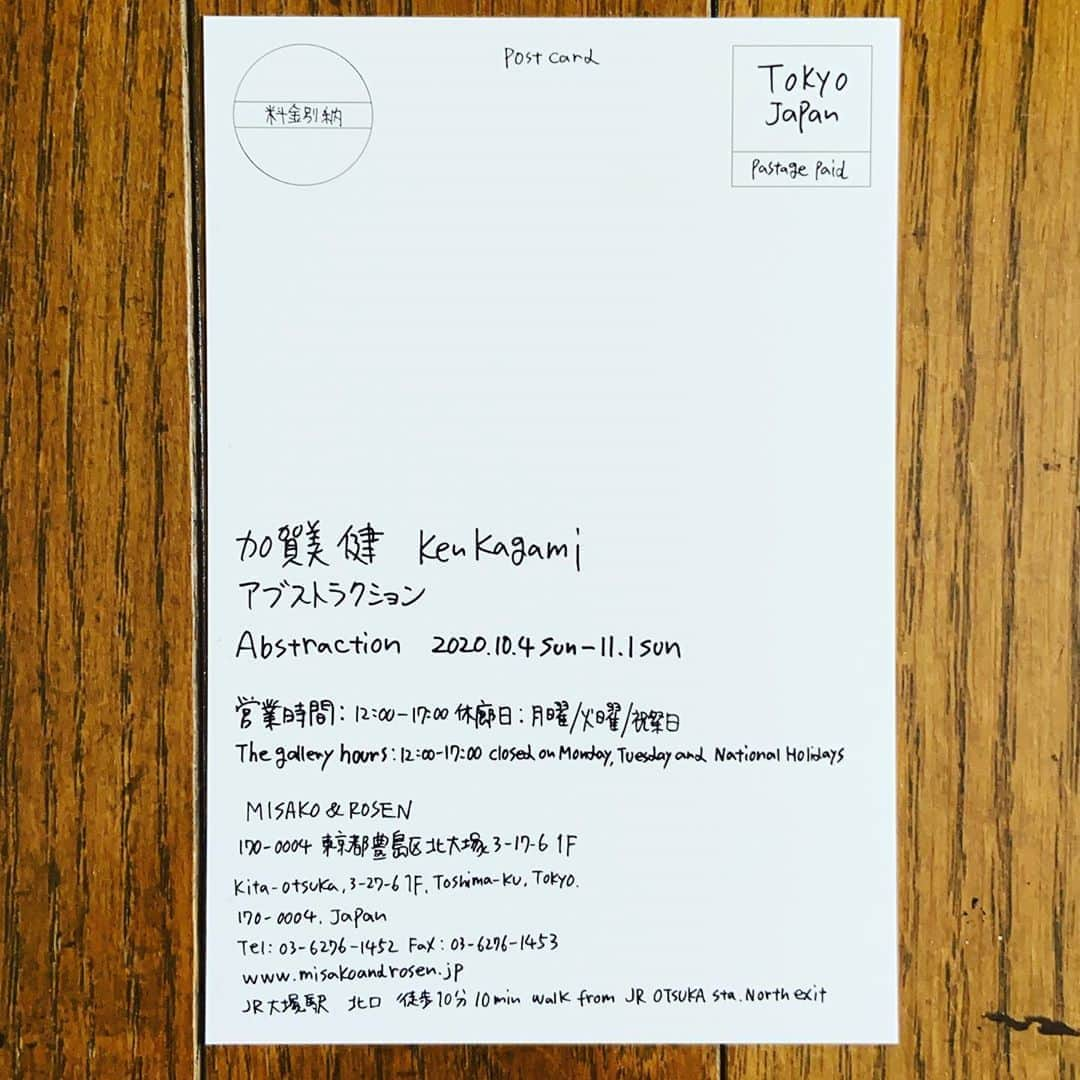 Post card
料金別納
Tokyo
Japan
Pastage Paid
加賀美 健 Ken Kagami
アブストラクション
Abstraction 2020.10.4 sun-11.1 sun
営業時間:12:00-17:00 休廊日:月曜/火曜/祝祭日
The gallery hours:12:00-17:00 closed on Monday, Tuesday and National Holidays
MISAKO & ROSEN
170-0004 東京都豊島区北大塚3-17-6 1F
Kita-otsuka, 3-27-6 1F, Toshima-ku, Tokyo.
170-0004, Japan
Tel: 03-6276-1452 Fax: 03-6276-1453
www.misakoandrosen.jp
JR大塚駅 北口 徒歩10分 10min walk from JR OTSUKA sta. North exit